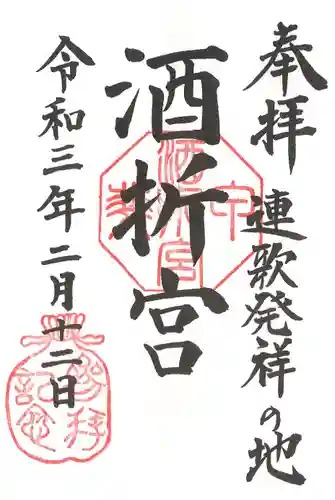 奉拝
連歌発祥の地
酒折宮
令和三年二月十二日
酒折宮
参拝
記念